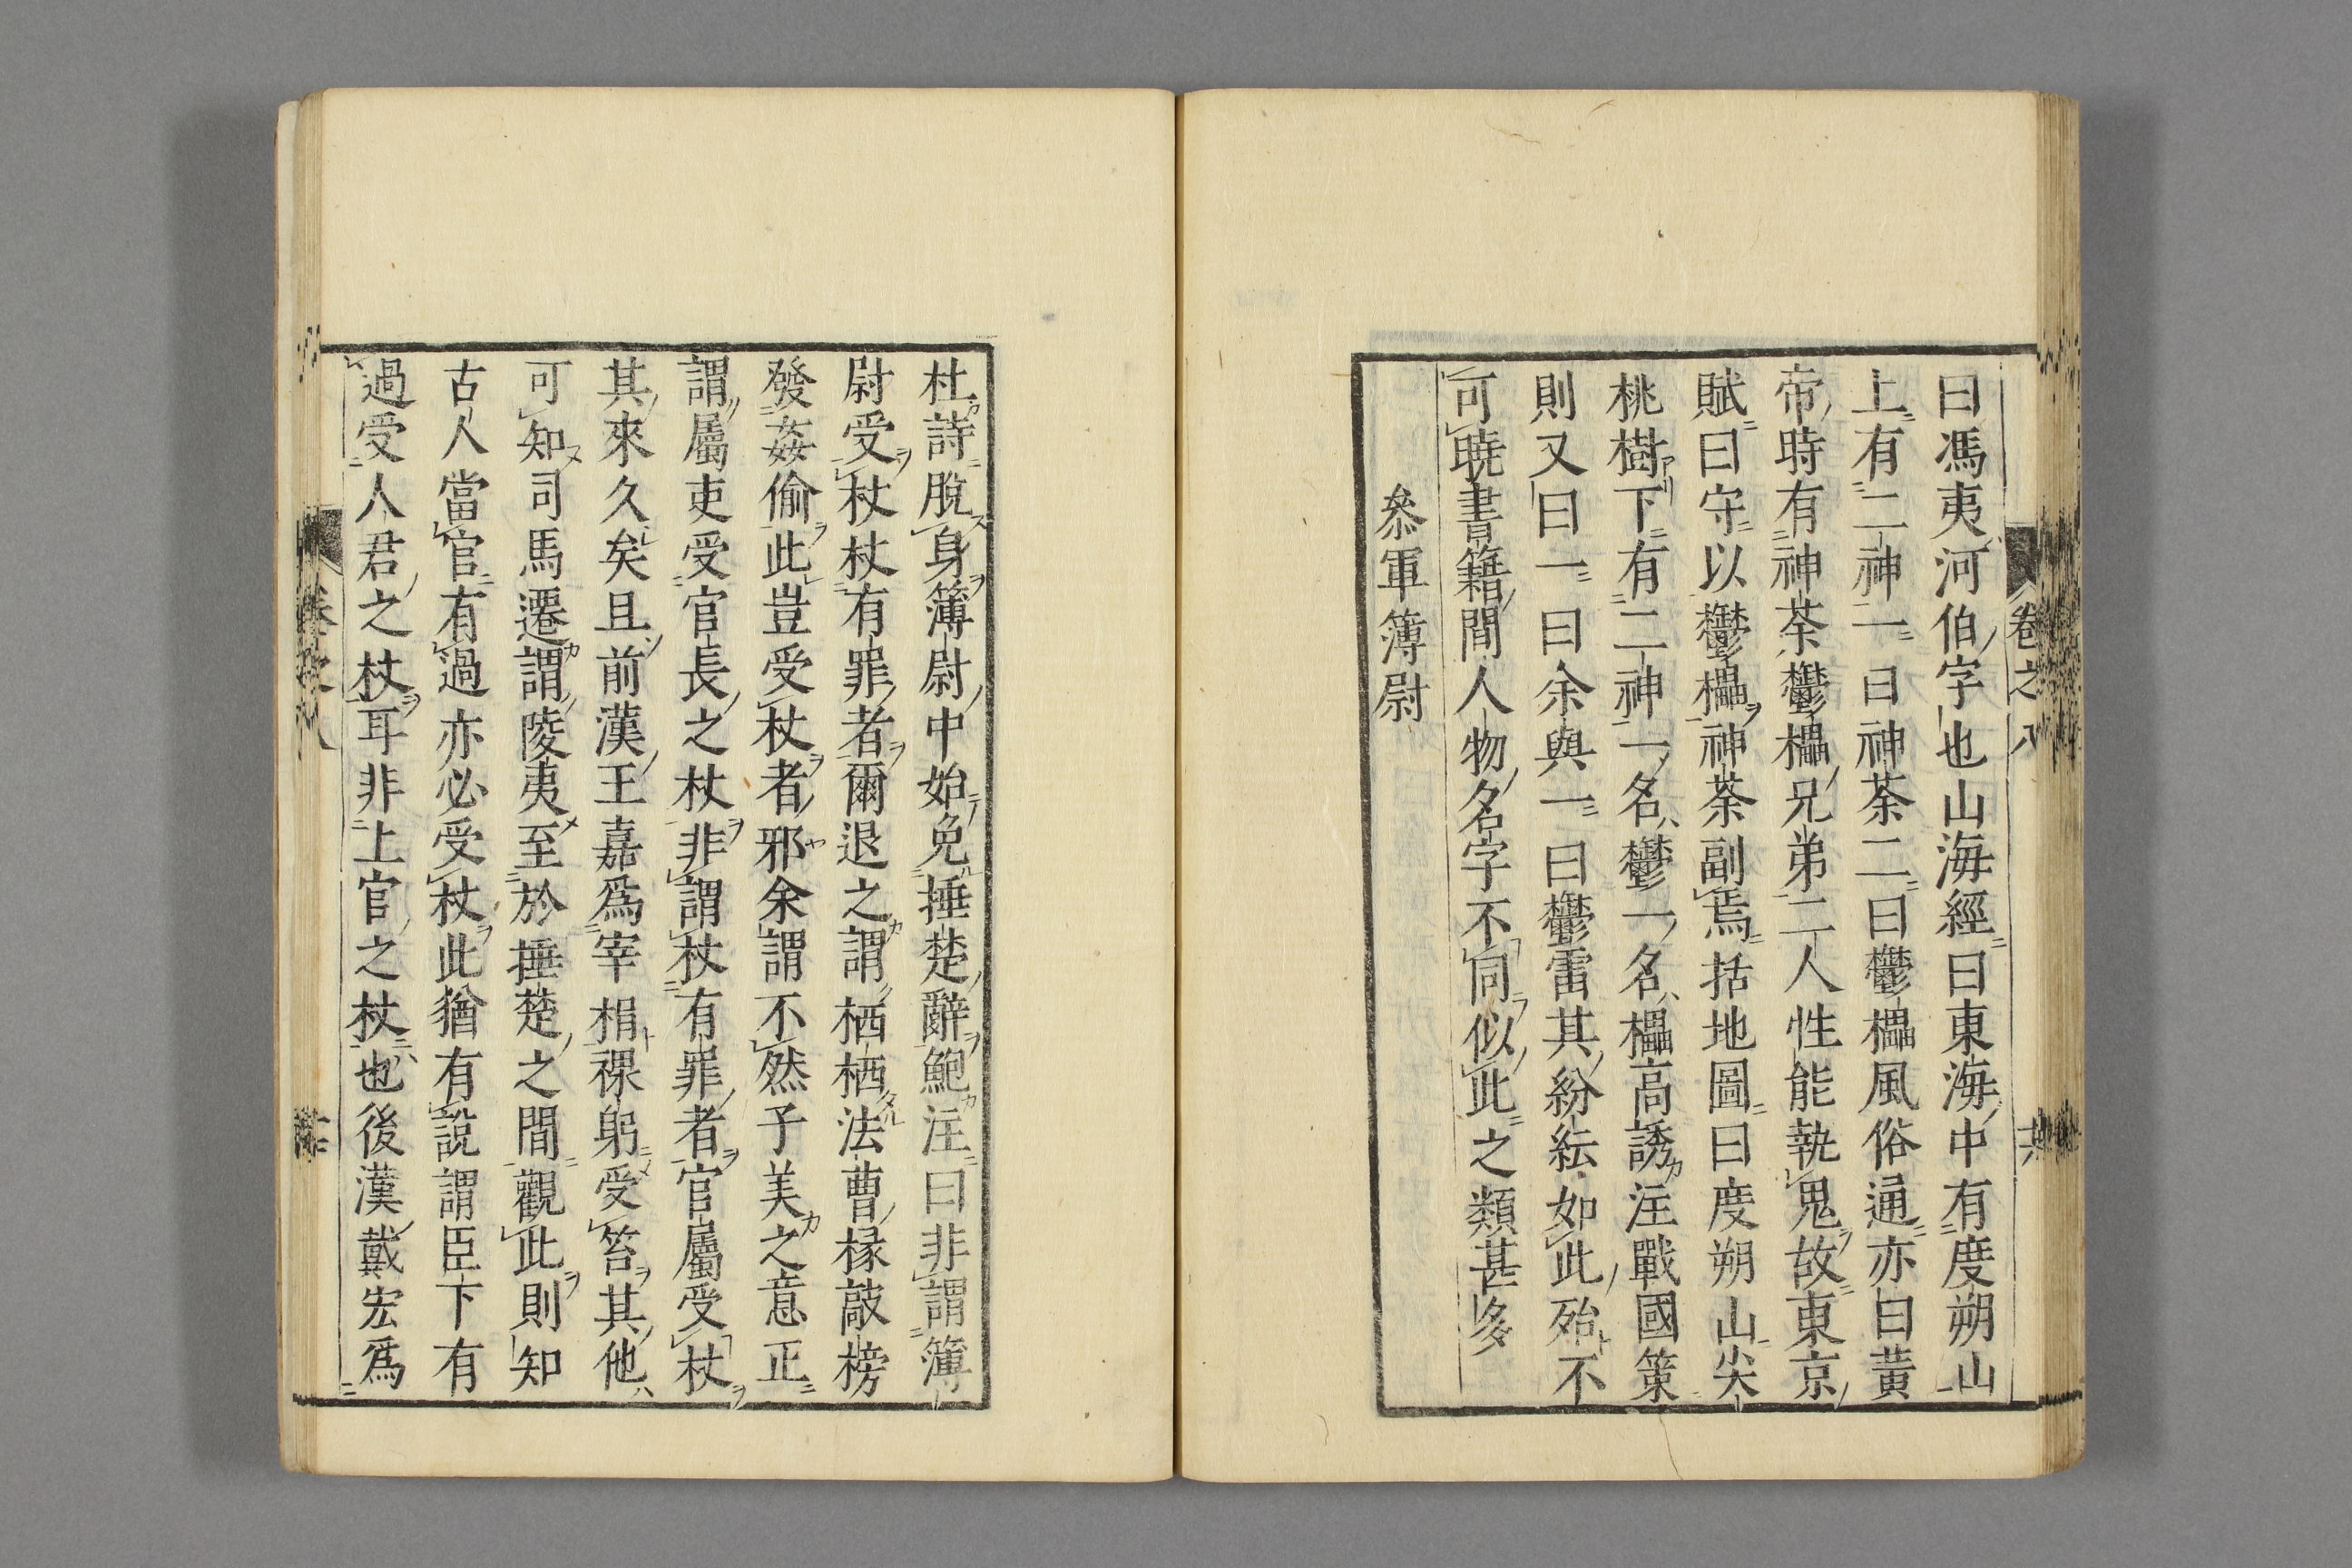 曰馮夷河伯字也山海經曰東海中有度朔山
上有二神一曰神荼二曰鬱櫑風俗通亦曰黃
帝時有神荼鬱櫑兄弟二人性能執鬼故東京
賦曰守以鬱櫑神荼副焉括地圖曰度朔山尖
桃樹下有二神一名鬱一名櫑高誘注戰國策
則又曰一曰余與一曰鬱雷其紛紜如此殆不
可曉書籍間人物名字不同似此之類甚多
叅軍簿尉
杜詩脫身簿尉中始免捶楚辭鮑注曰非謂簿
尉受杖杖有罪者爾退之謂栖栖法曹掾敲榜
發姦偷此豈受杖者邪余謂不然子美之意正
謂屬吏受官長之杖非謂杖有罪者官屬受杖
其來久矣且前漢王嘉爲宰相裸躬受笞其他
可知司馬遷謂陵夷至於捶楚之間觀此則知
古人當官有過亦必受杖此猶有說謂臣下有
過受人君之杖耳非上官之杖也後漢戴宏爲
卷之八